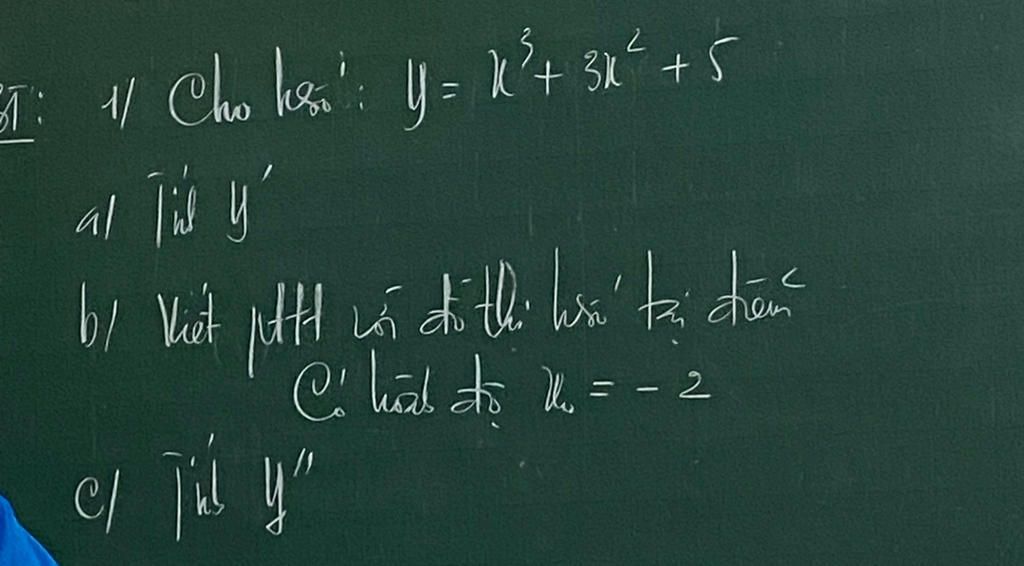 BT: 1/ Cho hsố: y = x³ + 3x² + 5
a/ Tính y'
b/ Viết pttt với đồ thị hsố tại điểm
Có hoành độ x₀ = - 2
c/ Tính y''